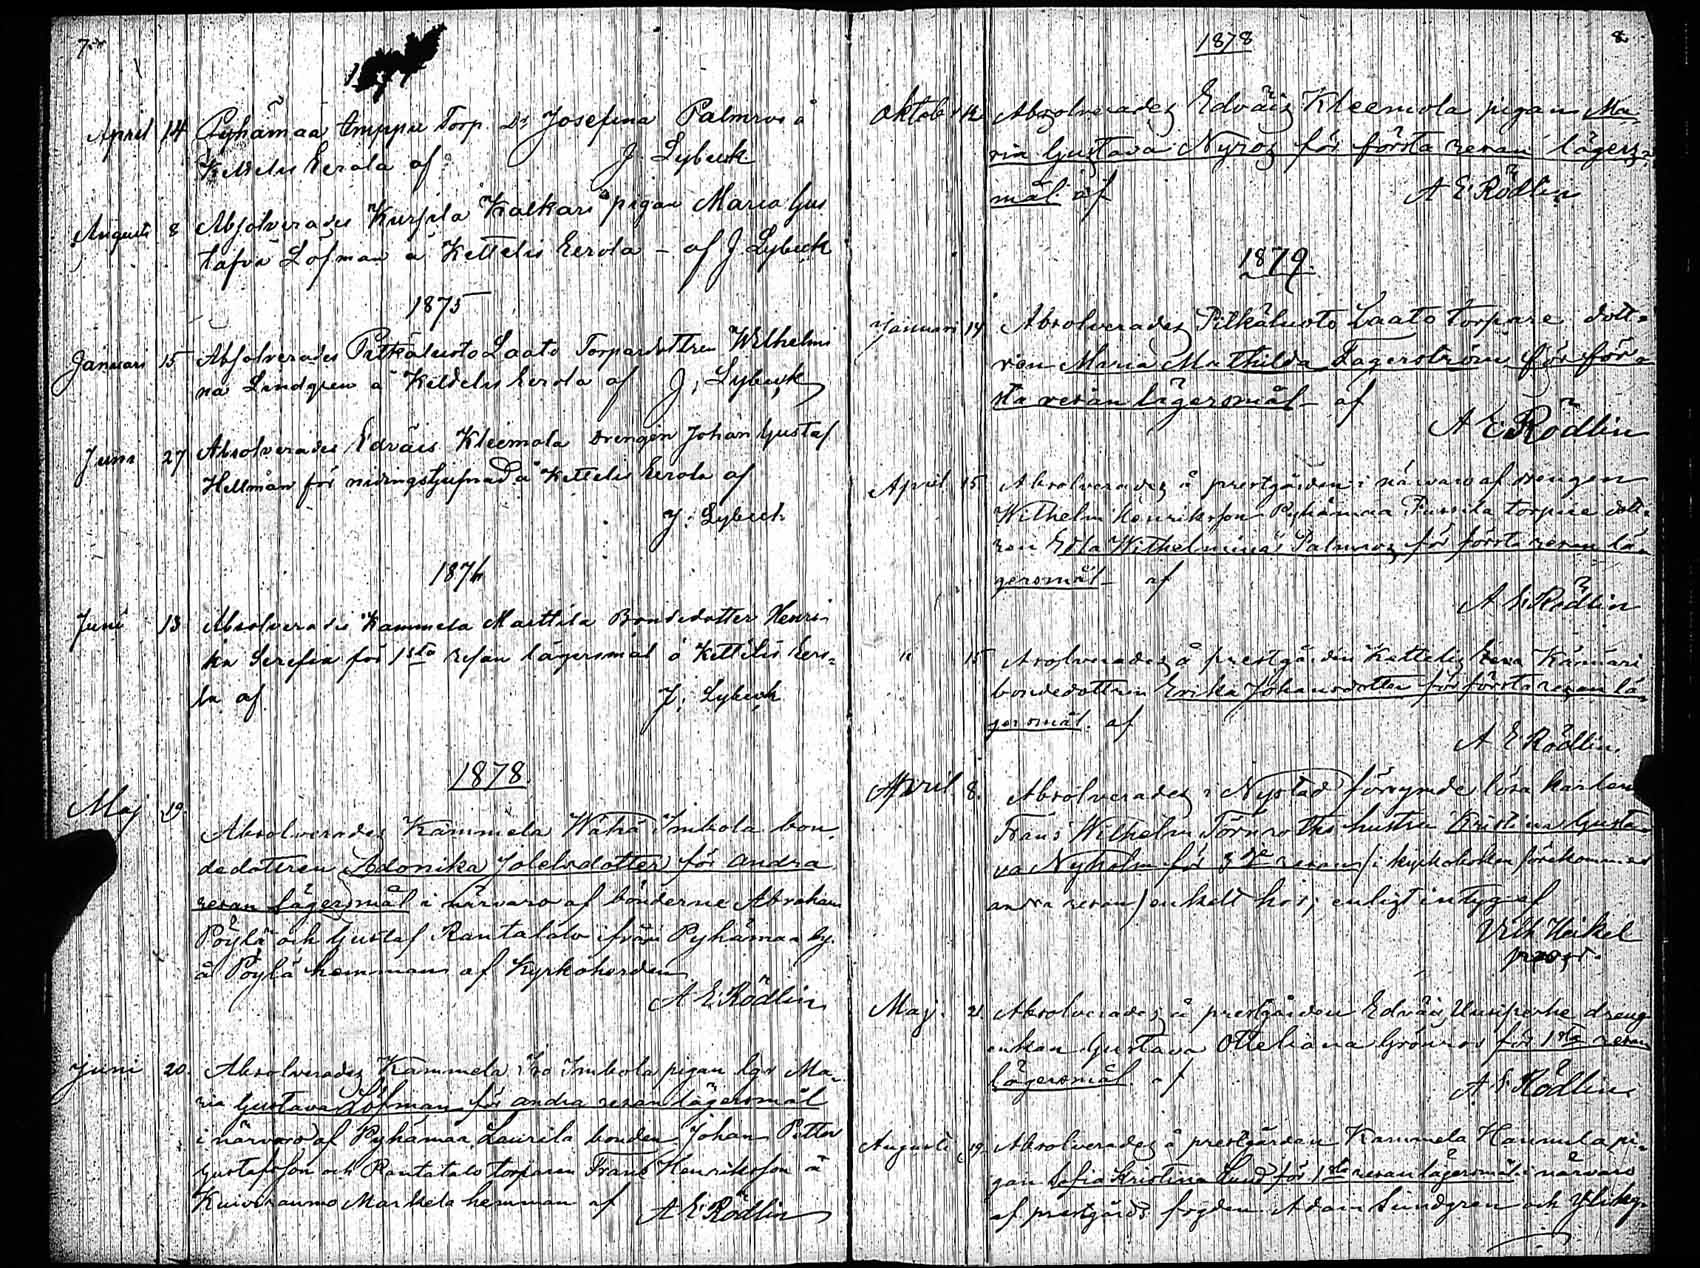 7.
April 14 Pyhämaa Amppu Torp. Dr Josefina Palmros å
Kettelis Eerola af J. Lybeck
Augusti 8 Absolverades Kurjila Kalkari pigan Maria Gus
tafva Löfman å Kettelis Eerola – af J. Lybeck
1875
Januari 15 Absolverades Pitkäluoto Laato Torpardottren Wilhelmi
na Lindgren å Kettelis Eerola af J. Lybeck
Juni 27 Absolverades Edväis Kleemola Drengen Johan Gustaf
Hellman för nidingstjufnad å Kettelis Eerola af
J. Lybeck
1876
Juni 13 Absolverades Kammela Marttila Bondedotter Henri
ka Serefia för 1sta resan lägersmål å Kettelis Eero-
la af J. Lybeck
1878.
Maj 19. Absolverades Kammela Wähä Imkola bon
dedottren Adonika Joelsdotter för andra
resan lägersmål i närvaro af bönderne Abraham
Pöylä och Gustaf Rantatalo från Pyhämaa by.
å Pöylä hemman af Kyrkoherden
A E Rödlin
Juni 20. Absolverades Kammela Iso Imkola pigan Ma-
ria Gustava Löfman för andra resan lägersmål
i närvaro af Pyhämaa Laurila bonden Johan Petter
Gustafsson och Rantatalo torparen Frans Henriksson å
Kuivarauma Markela hemman af A E Rödlin
1878
8.
Oktob. 12. Absolverades Edväis Kleemola pigan Ma-
ria Gustava Nyroos för första resan lägers-
mål af A E Rödlin
1879.
Januari 14 Absolverades Pitkäluoto Laato torpare dott-
ren Maria Mathilda Fagerström för för-
sta resan lägersmål – af
A E Rödlin
April 15 Absolverades å prestgården i närvaro af drengen
Wilhelm Henriksson Pyhämaa torpare dott-
ren Edla Wilhelmina Palmroos för första resan lä-
gersmål – af
A E Rödlin
" 15 Absolverades å prestgården Kettelis
bondedottren Erika Johansdotter för första resan lä-
gersmål af
A E Rödlin.
April 8. Absolverades i Nystad försynde lösa karlen
Frans Wilhelm Törnroths hustru Kristina Gusta-
va Nyholm för 3dje resan (i kyrkoboken förekommer
andra resan) enkelt hor, enligt intyg af
Vilh Heikel
prost.
Maj. 21. Absolverades å prestgården Edväis Uusiperhe dreng
enkan Gustava Otteliana Grönros för 1sta resan
lägersmål af A E Rödlin
Augusti 19. Absolverades å prestgården Kammela Hannula pi-
gan Sofia Kristina Lund för 1sta resan lägersmål i närvaro
af prestgårds fogden Adam Sundgren och